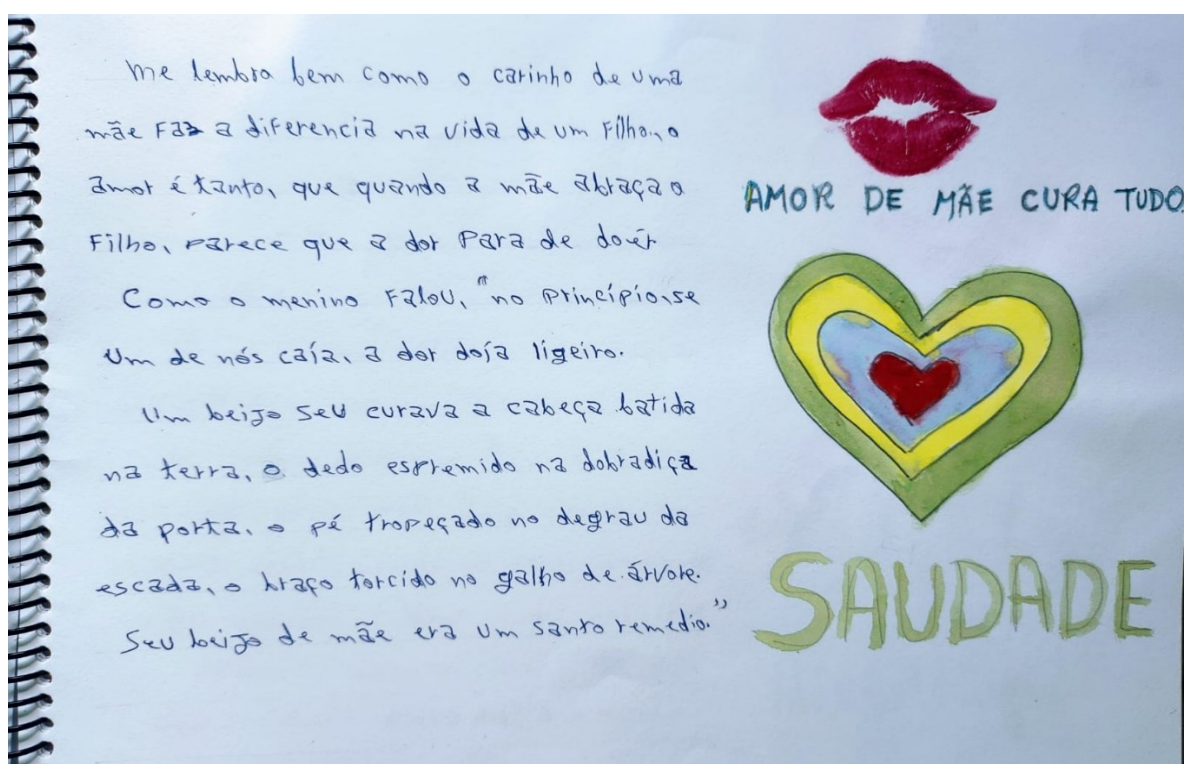 Me lembro bem como o carinho de uma
mãe Faz a diferencia na vida de um Filho, o
amor é tanto, que quando a mãe abraça o
Filho, parece que a dor Para de doer
Como o menino Falou, "no Princípio, se
Um de nós caía, a dor doía ligeiro.
Um beijo seu curava a cabeça batida
na terra, o dedo espremido na dobradiça
da porta, o pé tropeçado no degrau da
escada, o braço torcido no galho de árvore.
Seu beijo de mãe era um santo remedio."
AMOR DE MÃE CURA TUDO.
SAUDADE